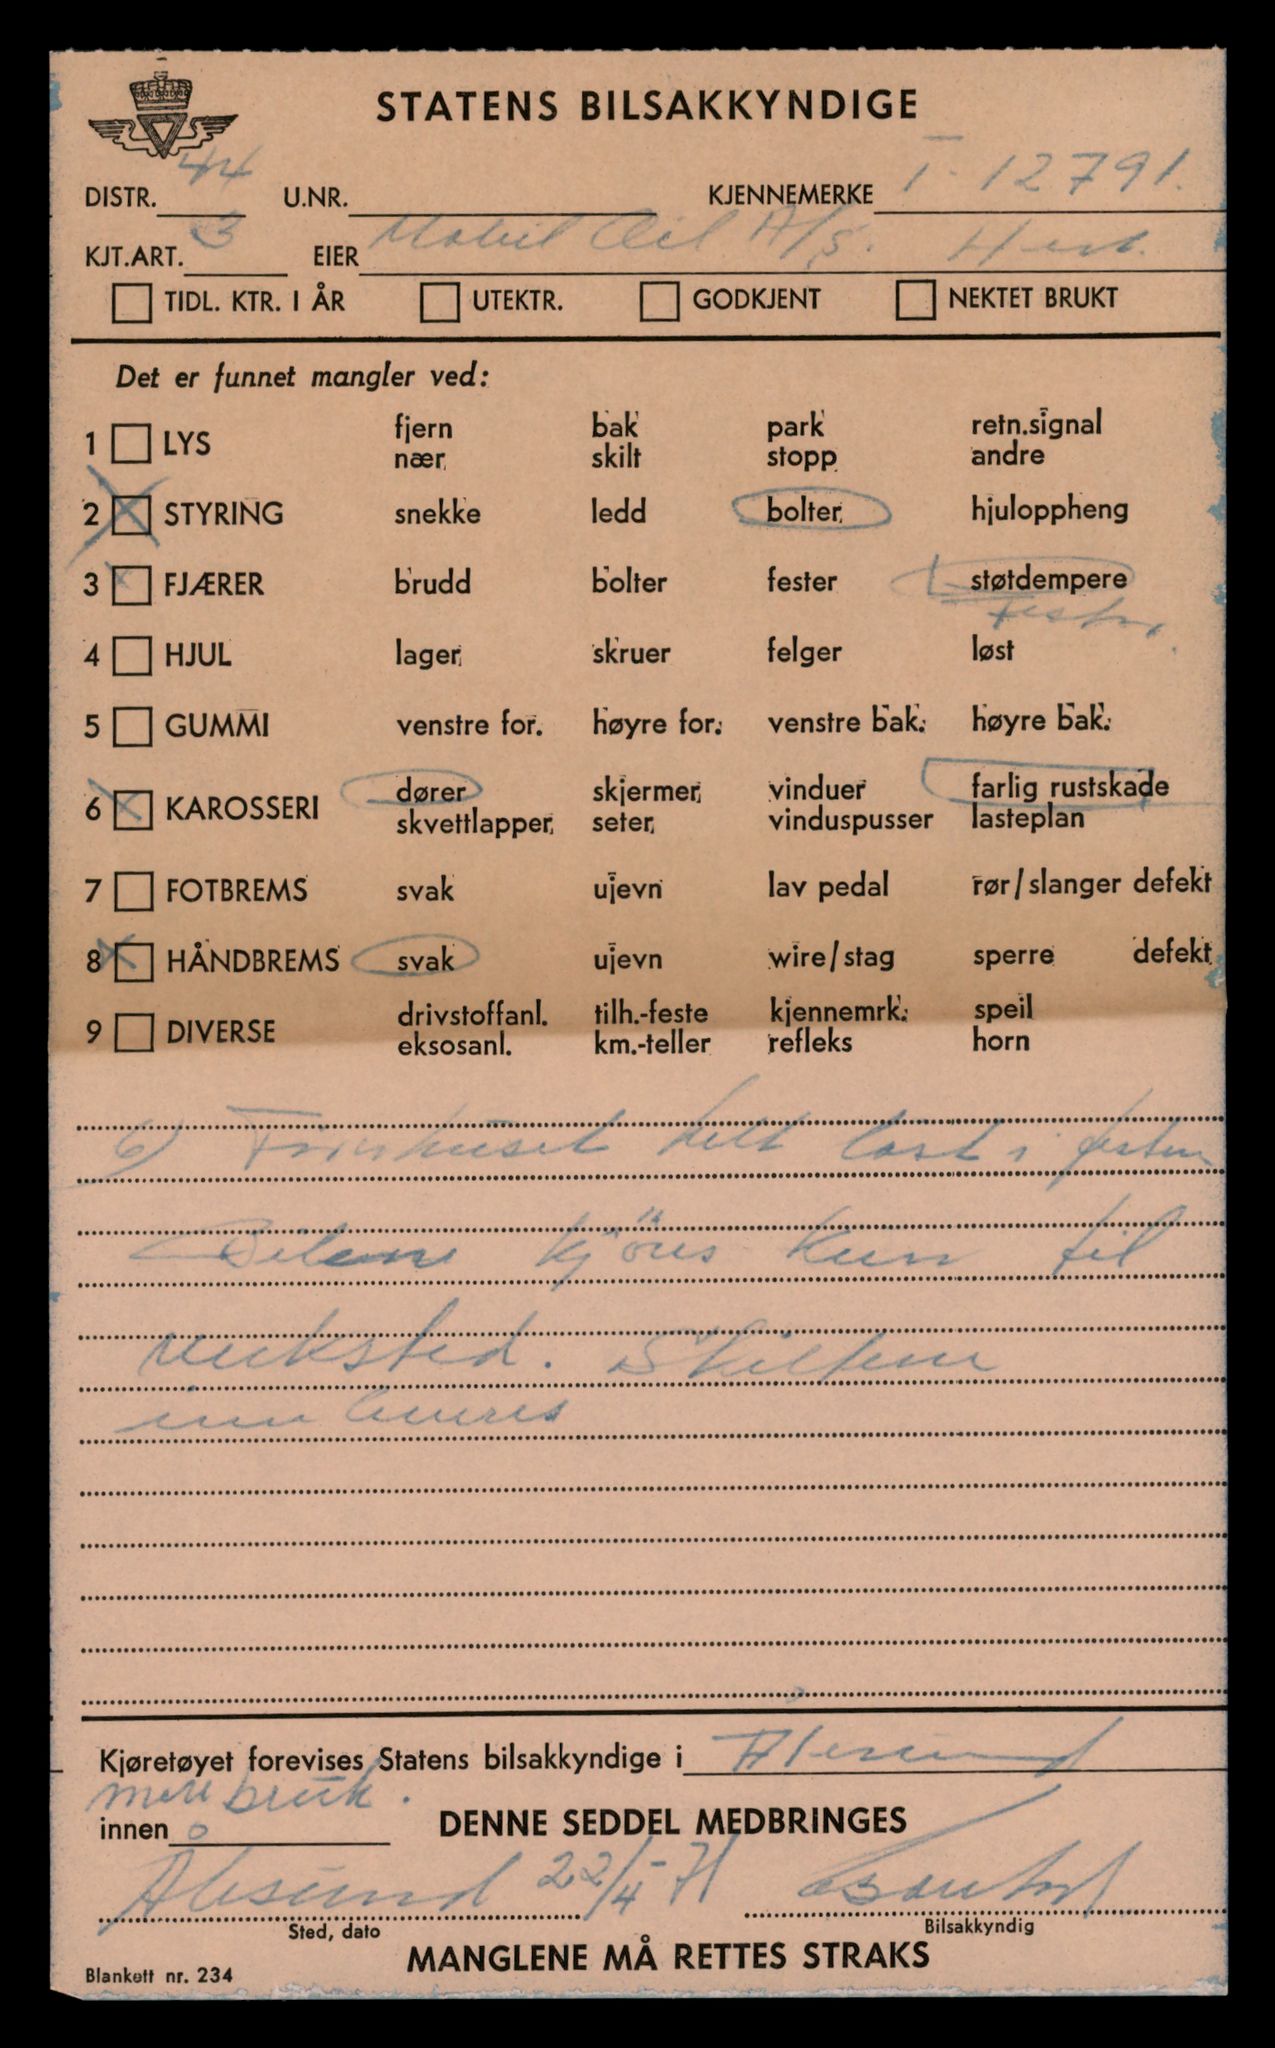 STATENS BILSAKKYNDIGE
DISTR. 44 U.NR. KJENNEMERKE T-12791.
KJT.ART. 3 EIER Mobil Oil A/S. Her.
TIDL. KTR. I ÅR UTEKTR. GODKJENT NEKTET BRUKT
Det er funnet mangler ved:
1 LYS fjern bak park retn.signal
nær skilt stopp andre
2 STYRING snekke ledd bolter hjuloppheng
3 FJÆRER brudd bolter fester støtdempere
4 HJUL lager skruer felger løst
5 GUMMI venstre for. høyre for. venstre bak. høyre bak.
6 KAROSSERI dører skjermer vinduer farlig rustskade
skvettlapper seter vinduspusser lasteplan
7 FOTBREMS svak ujevn lav pedal rør/slanger defekt
8 HÅNDBREMS svak ujevn wire/stag sperre defekt
9 DIVERSE drivstoffanl. tilh.-feste kjennemrk. speil
eksosanl. km.-teller refleks horn
6) Førerhuset helt løst i festene
Bilene kjöres kun til
verksted. Skiltene
innleveres
Kjøretøyet forevises Statens bilsakkyndige i Ålesund
bruk.
innen DENNE SEDDEL MEDBRINGES
Ålesund 22/4-71
Sted, dato Bilsakkyndig
MANGLENE MÅ RETTES STRAKS
Blankett nr. 234